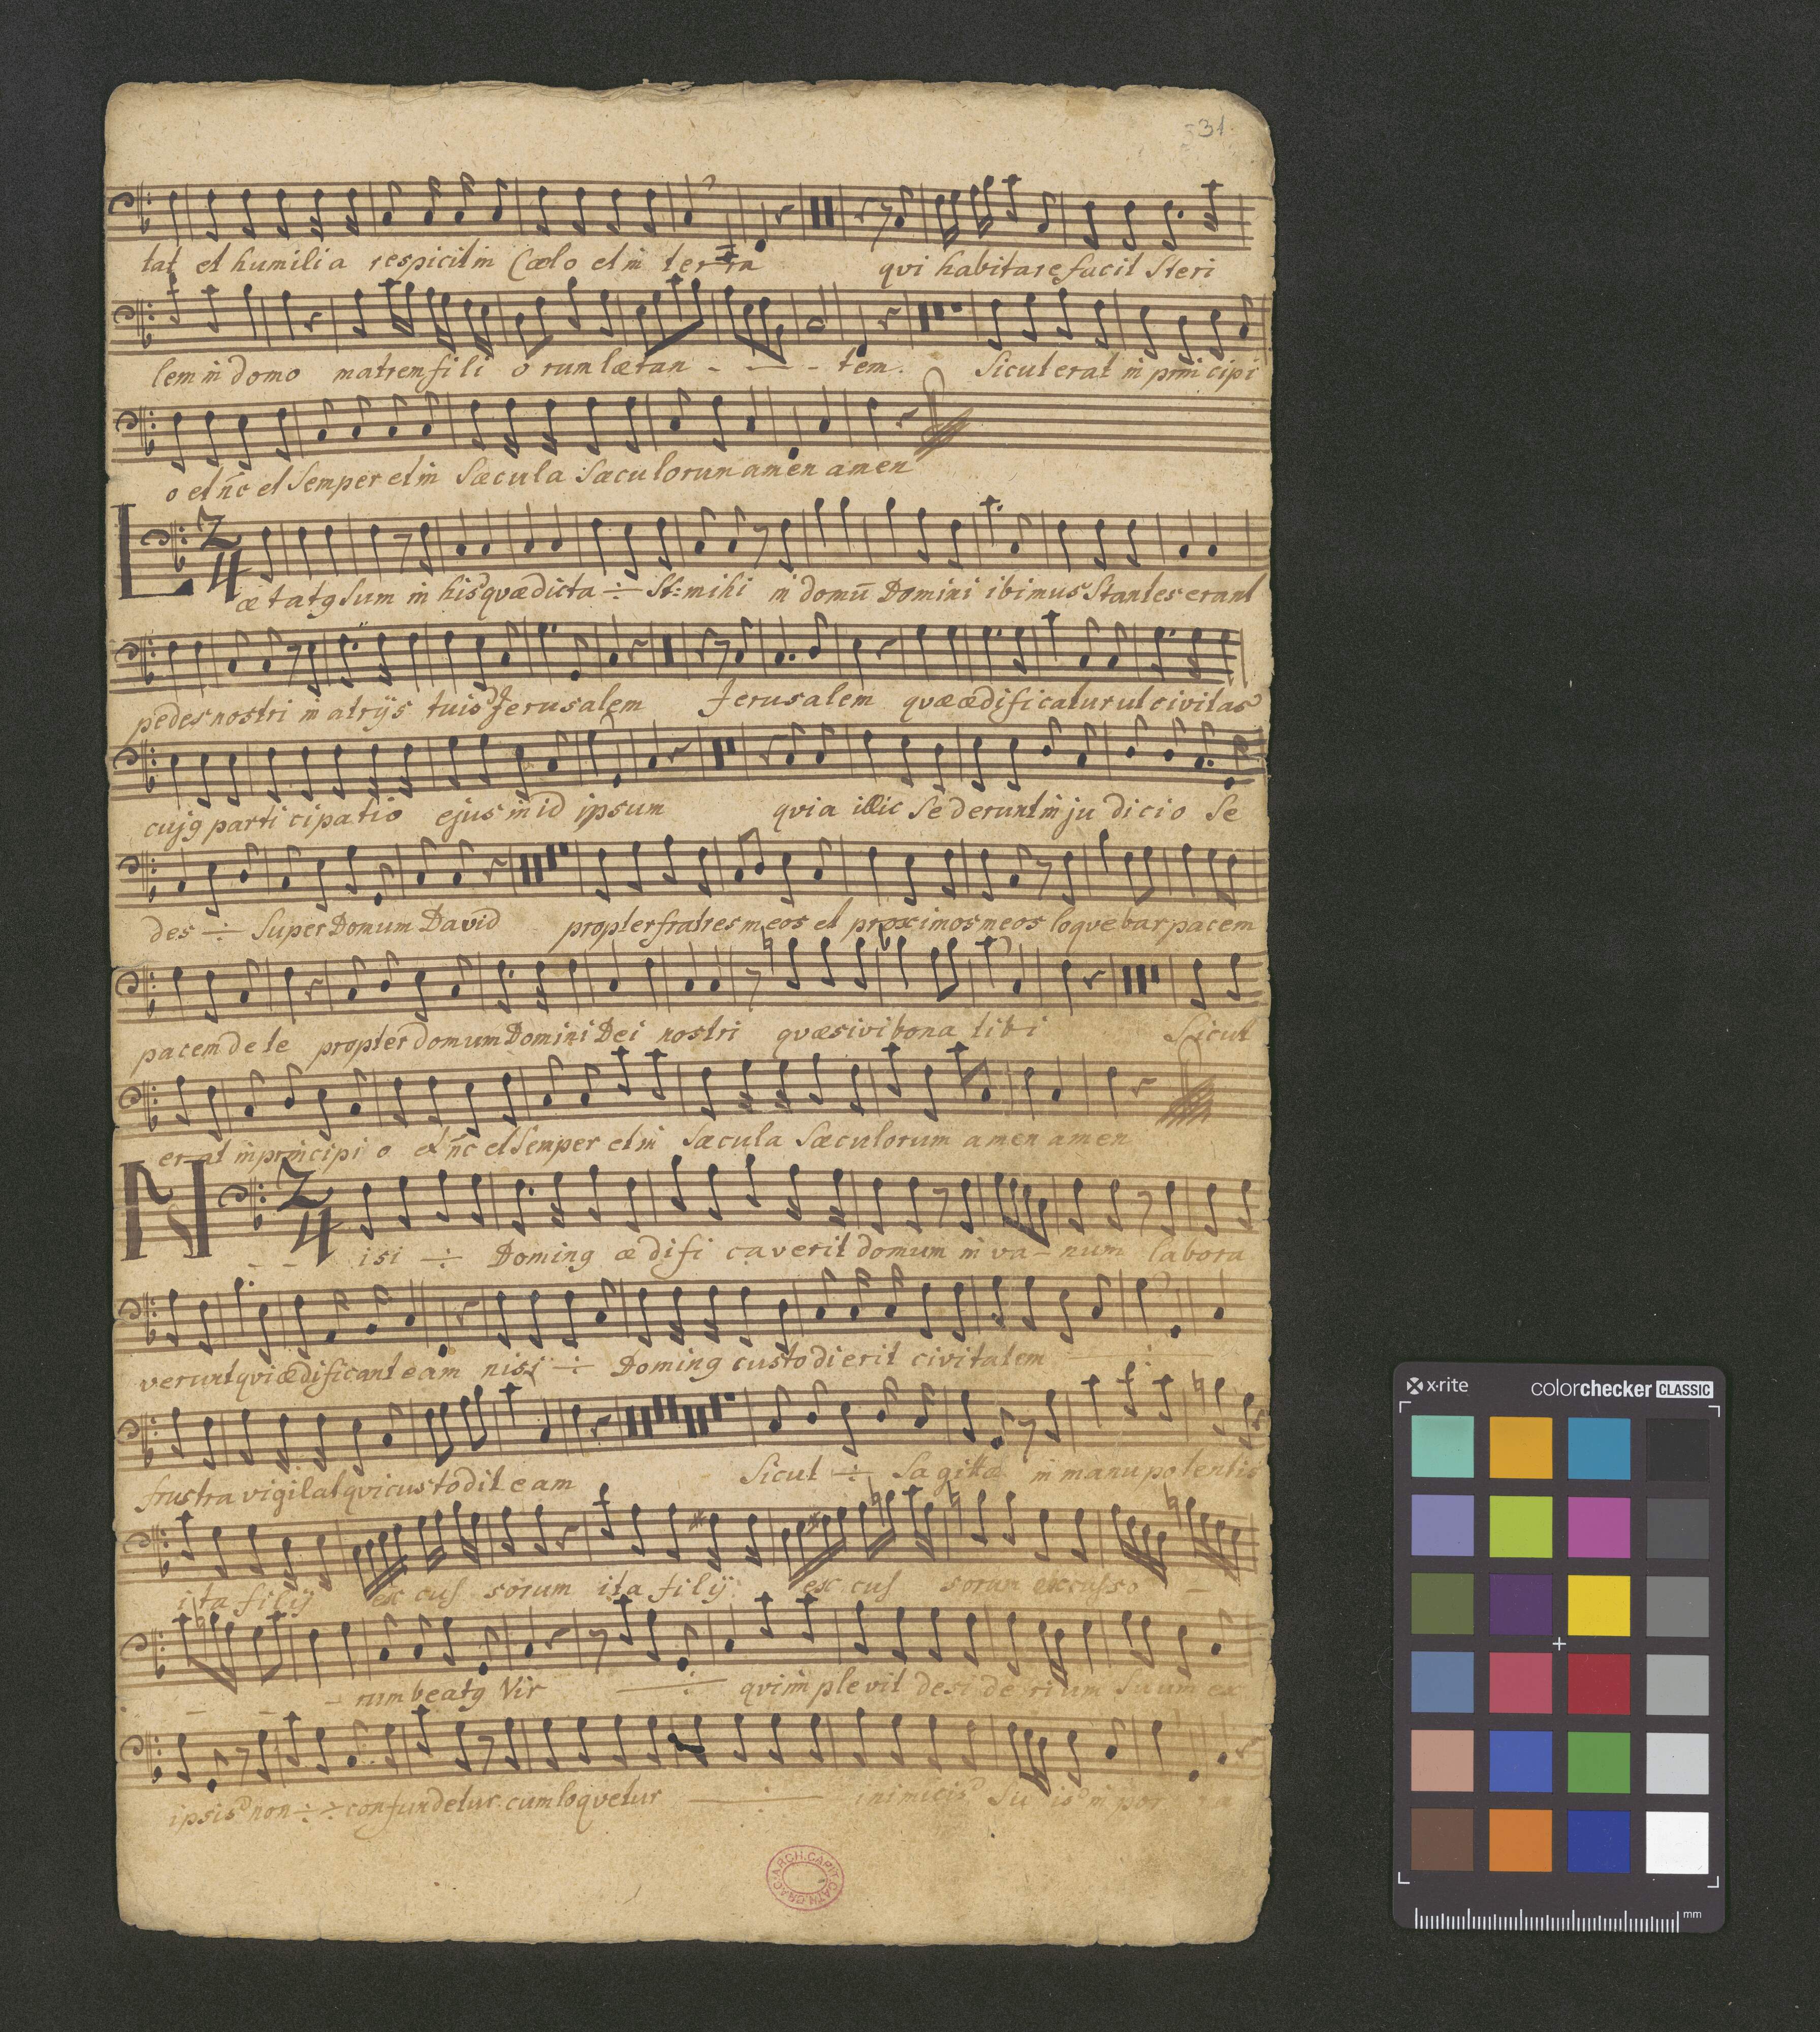 531
tat et humilia respicit in Cœlo et in terra qui habitare facit Steri
lem in domo matrem fili o rum lætan - - - tem. Sicut erat in prin cipi
o et nc̃ et Semper et in Sæcula Sæculorum amen amen
L 2/4
ætatg sum in his quæ dicta ÷ St: mihi in domū Domini ibimus Stantes erant
pedes nostri in atrijs tuis Jerusalem Jerusalem quæ ædificatur ut civitas
cujg parti cipatio ejus in id ipsum quia illic Se derunt in ju dicio Se
des ÷ Super Domum David propter fratres meos et proximos meos loquebar pacem
pacem de te propter domum Domini Dei nostri quæsivi bona tibi Sicut
erat in principi o et nc̃ et Semper et in Sæcula Sæculorum amen amen
N 2/4
- - isi ÷ Doming ædifi caverit domum in va - num labora
verunt qui ædificant eam nisi ÷ Doming custodierit civitatem ÷
frustra vigilat qui custodit eam Sicut ÷ Sagittæ in manu potentis
ita filij ex cus sorum ita filij ex cus sorum excusso -
- - - rum beatg Vir ÷ qui implevit desi de rium Suum ex
ipsis non ÷ ÷ confundetur cum loquetur ÷ inimicis Su is in por ta
ARCH. CAPIT. CATH. CRAC.
x·rite colorchecker CLASSIC
mm